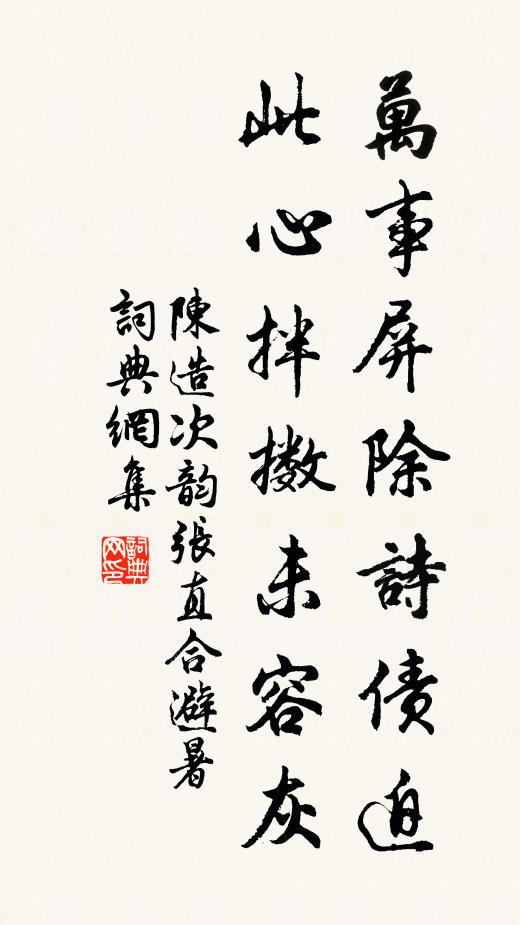 萬事屏除詩債迫
此心拌擻未容灰
陳造次韵張直合避暑
詞典網集
詞典网印